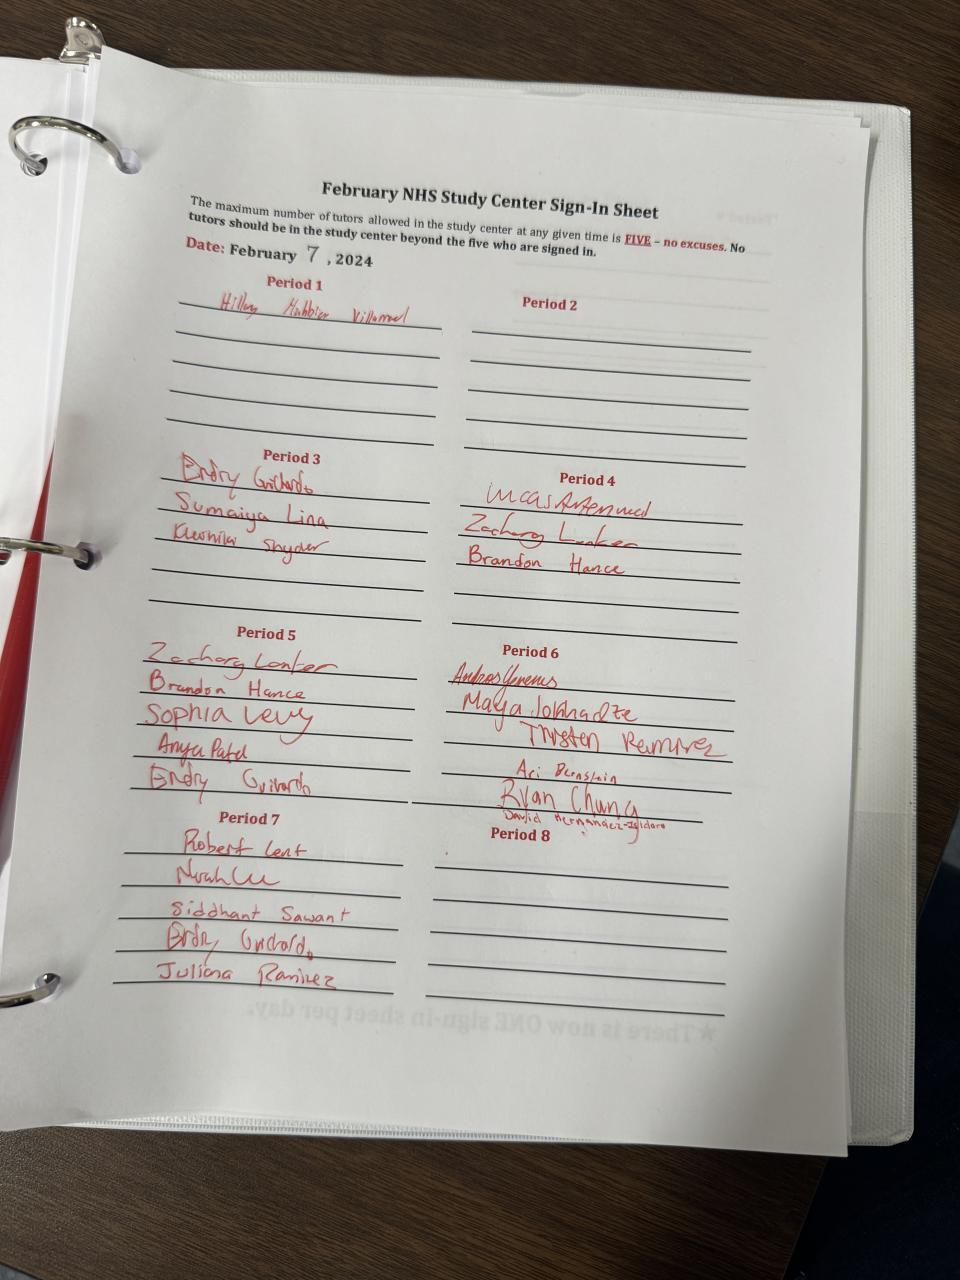 February NHS Study Center Sign-In Sheet
The maximum number of tutors allowed in the study center at any given time is FIVE – no excuses. No
tutors should be in the study center beyond the five who are signed in.
Date: February 7, 2024
Period 1
Period 2
Period 3
Sumaiya Lina
Snyder
Period 4
Zachary
Brandon Hance
Period 5
Zachary
Brandon Hance
Sophia Levy
Anya Patel
Period 6
Andreas
Maya Jokhadze
Tristen Ramirez
Ari Bernstein
Ryan Chung
David Hernandez-Isidoro
Period 7
Robert Lent
Noah
Siddhant Sawant
Juliana Ramirez
Period 8
★There is now ONE sign-in sheet per day.